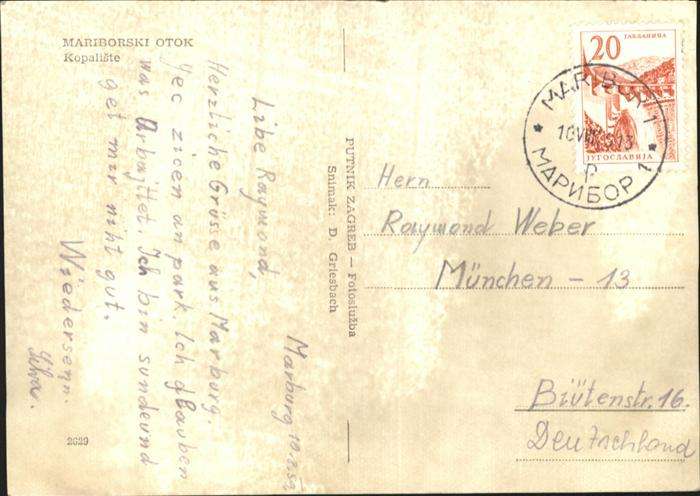 MARIBORSKI OTOK
Kopalište
Marburg
Libe Raymond,
Herzliche Grüse aus Marburg.
Yec zicen an park. Ich glauben
was Arbajtet. Ich bin sundeund
get mir niht gut.
Wiedersenn.
2629
PUTNIK ZAGREB — Fotoslužba
Snimak: D. Griesbach
20
ЈАБЛАНИЦА
JUGOSLAVIJA
MARIBOR 1
МАРИБОР 1
Hern
Raymond Weber
München - 13
Blütenstr. 16.
Deutschland